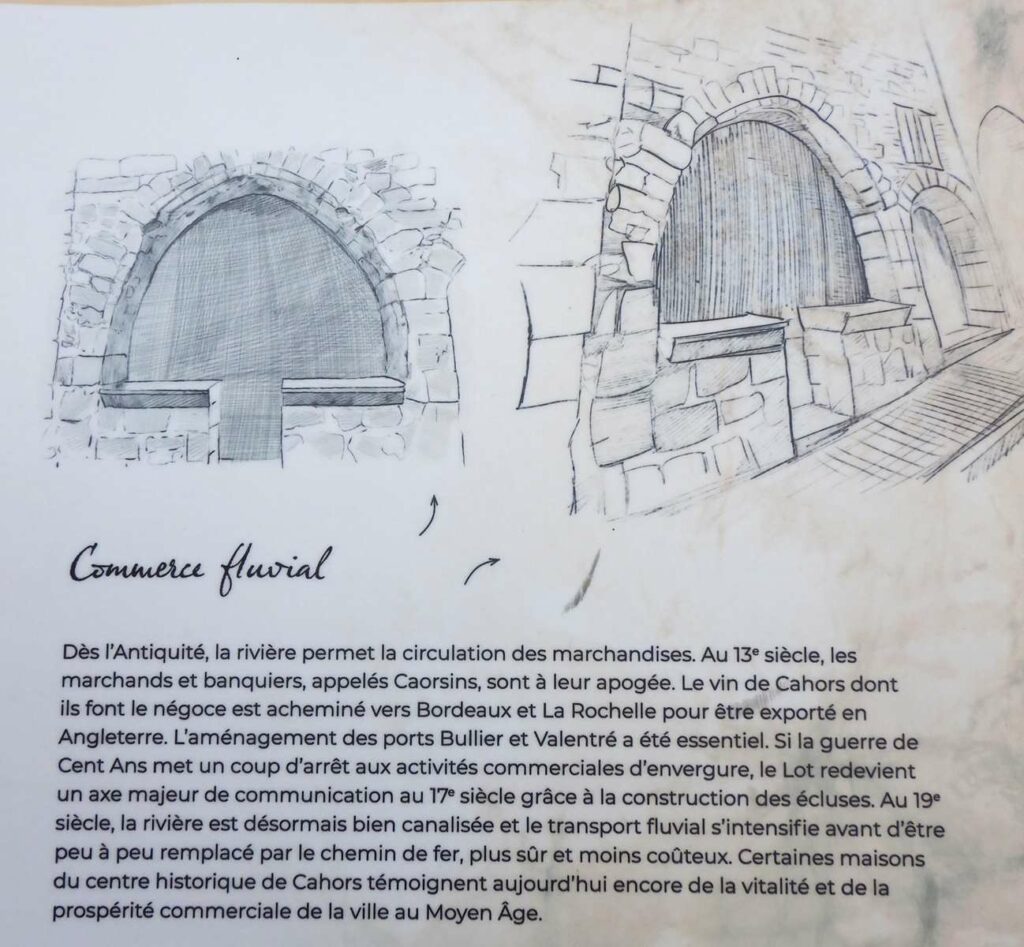 Commerce fluvial
Dès l'Antiquité, la rivière permet la circulation des marchandises. Au 13e siècle, les
marchands et banquiers, appelés Caorsins, sont à leur apogée. Le vin de Cahors dont
ils font le négoce est acheminé vers Bordeaux et La Rochelle pour être exporté en
Angleterre. L'aménagement des ports Bullier et Valentré a été essentiel. Si la guerre de
Cent Ans met un coup d'arrêt aux activités commerciales d'envergure, le Lot redevient
un axe majeur de communication au 17e siècle grâce à la construction des écluses. Au 19e
siècle, la rivière est désormais bien canalisée et le transport fluvial s'intensifie avant d'être
peu à peu remplacé par le chemin de fer, plus sûr et moins coûteux. Certaines maisons
du centre historique de Cahors témoignent aujourd'hui encore de la vitalité et de la
prospérité commerciale de la ville au Moyen Âge.